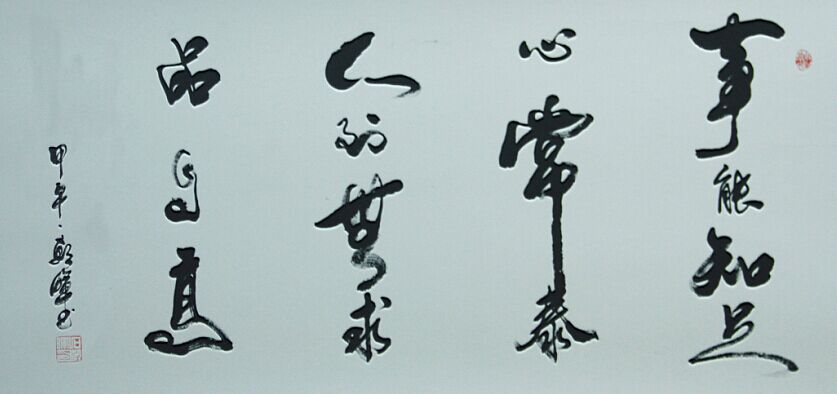 事能知足
心常泰
人到無求
品自高
甲午